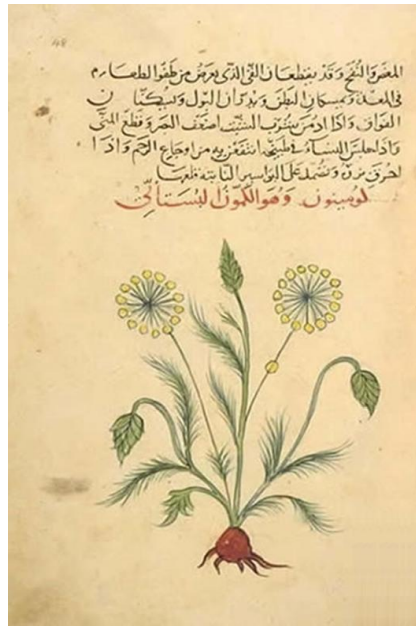 48
المغص والنفخ وقد يقطعان القى الذى يعرض من طفو الطعام
فى المعدة ويمسكان البطن ويدران البول ويسكنان
الفواق واذا ادمن شرب الشبث اضعف البصر وقطع المنى
واذا جلس النساء فى طبيخه انتفعن به من اوجاع الرحم واذا
احرق بزره وتضمد على البواسير الناتية قلعها
كومينون وهو الكمون البستانى